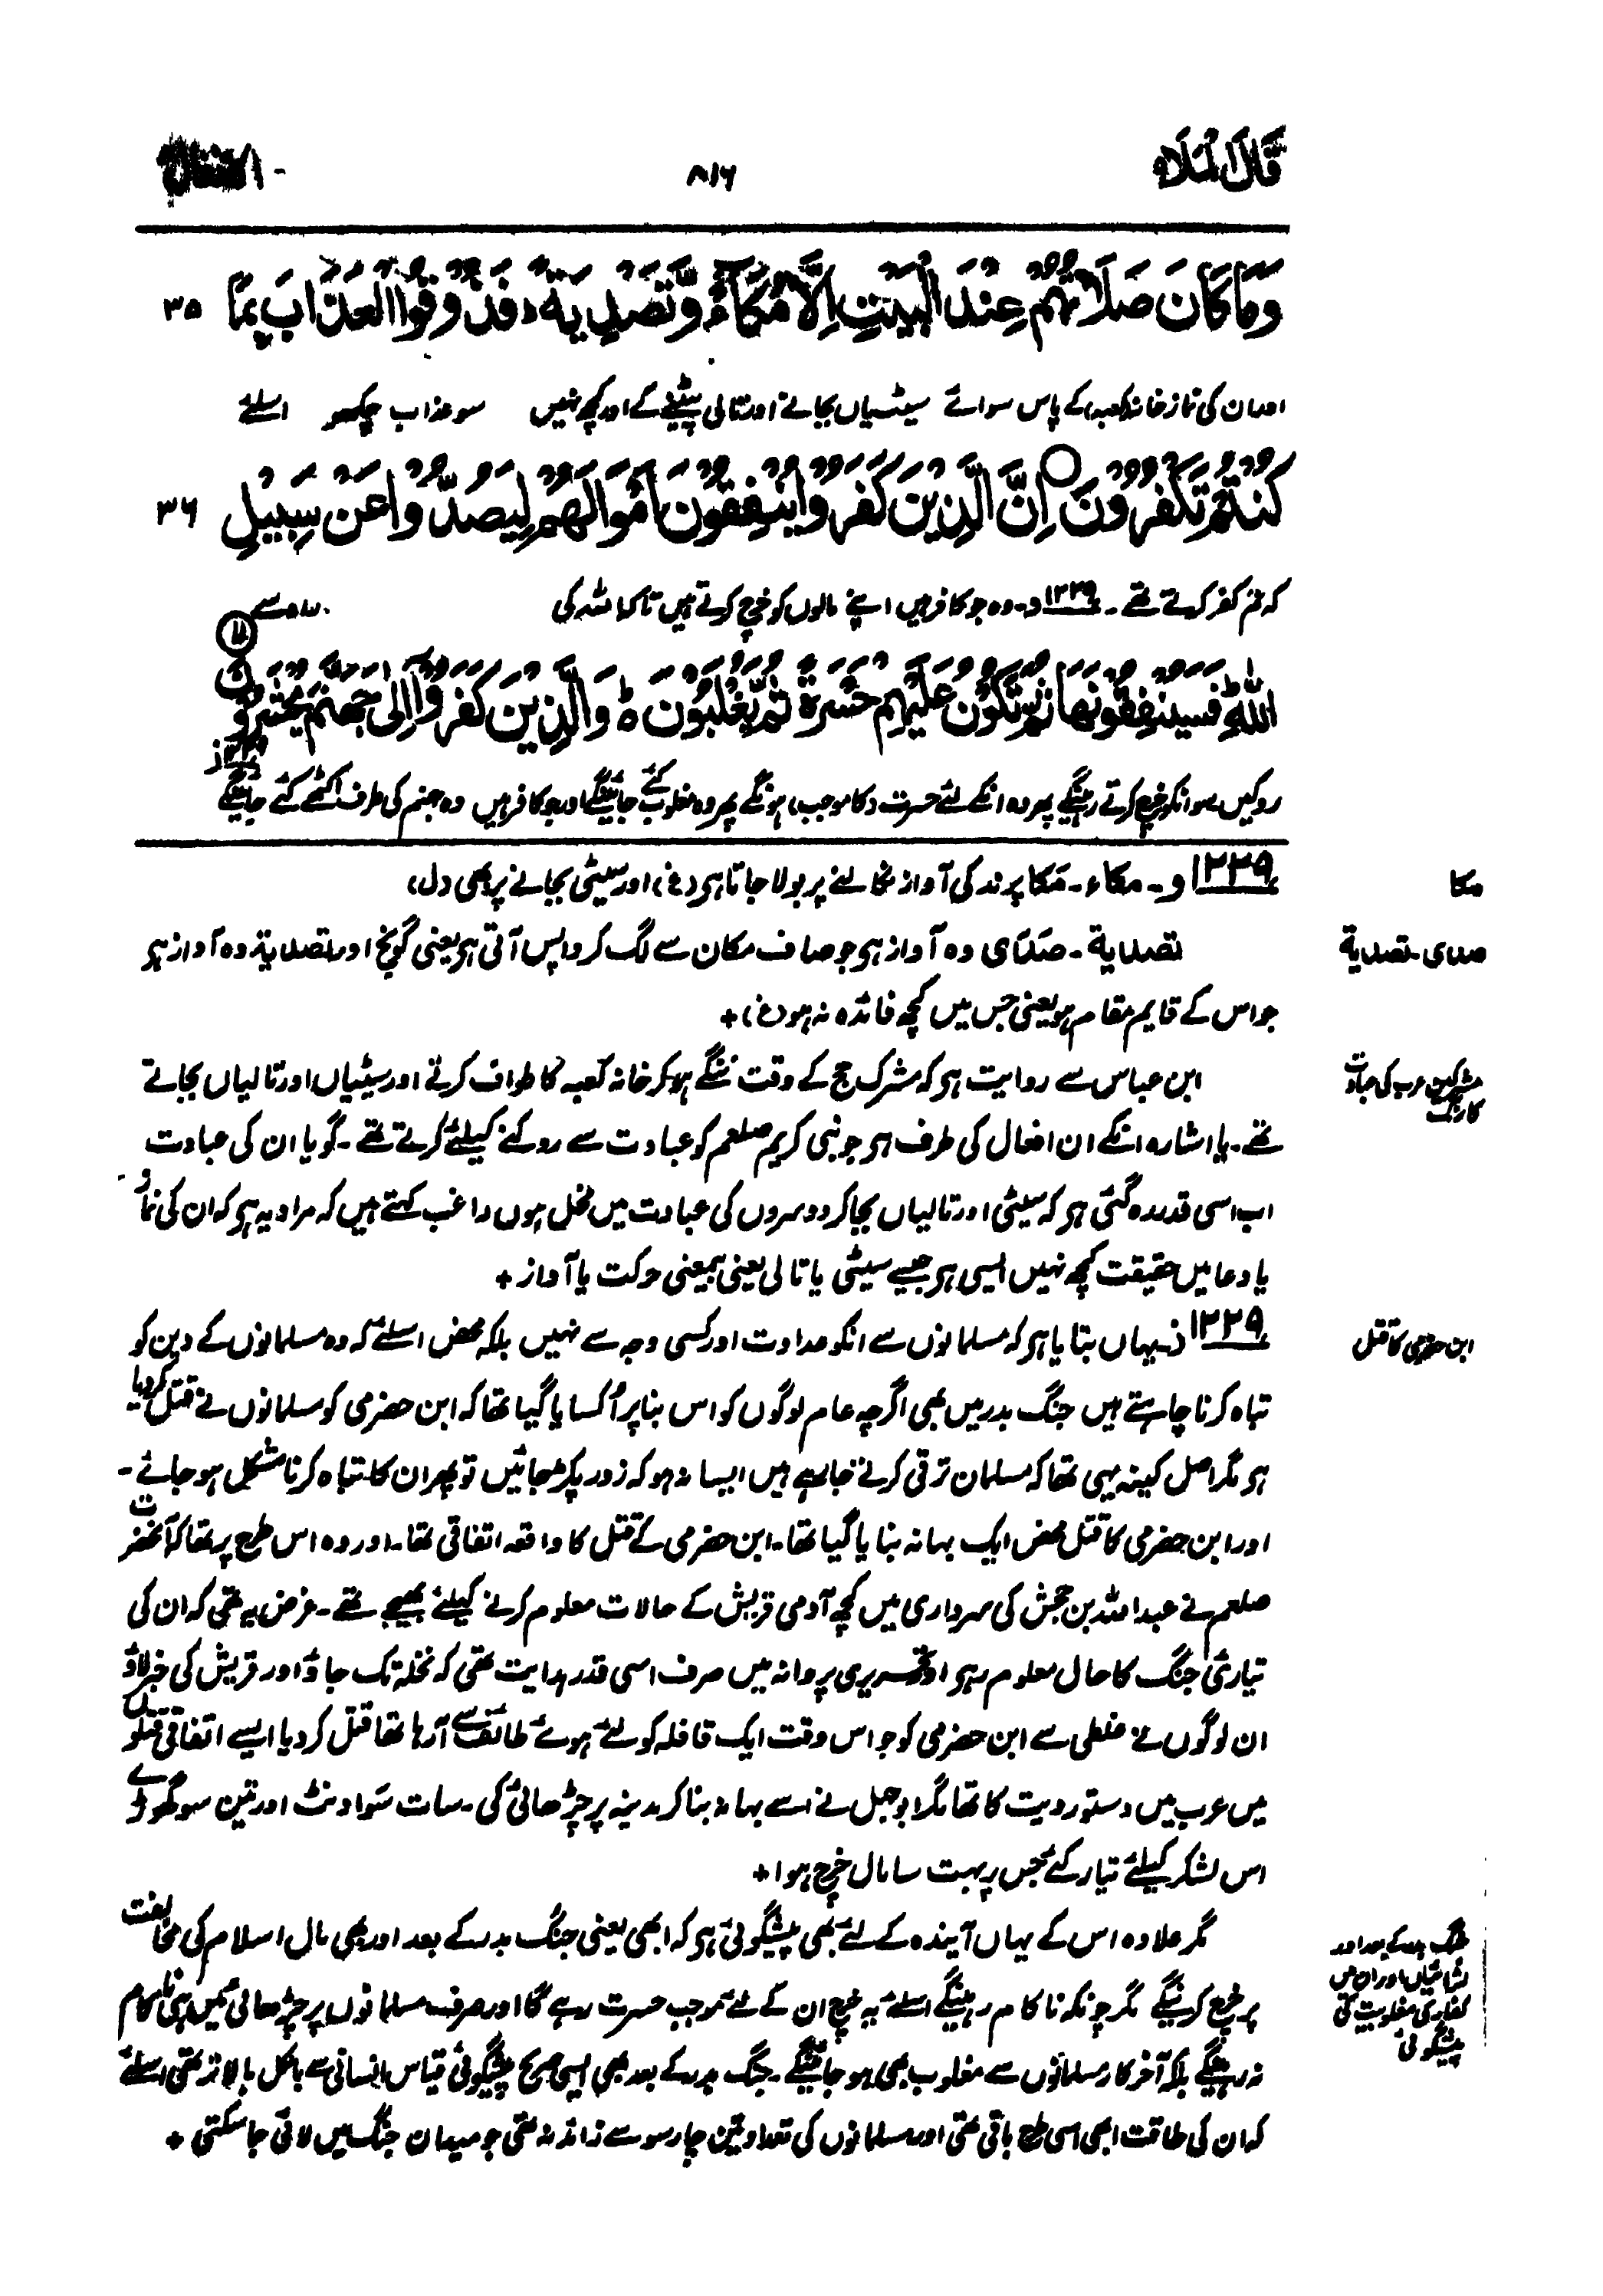 قَالَ الْمَلَاُ
٨١٦
الانفال
وَمَا كَانَ صَلَاتُهُمْ عِنْدَ الْبَيْتِ اِلَّا مُكَآءً وَّتَصْدِيَةً ؕ فَذُوْقُوا الْعَذَابَ بِمَا
٣٥
اور ان کی نماز خانہ کعبہ کے پاس سوائے سیٹیاں بجانے اور تالی پیٹنے کے اور کچھ نہیں سو عذاب چکھو اسلئے
كُنْتُمْ تَكْفُرُوْنَ ۝ اِنَّ الَّذِيْنَ كَفَرُوْا يُنْفِقُوْنَ اَمْوَالَهُمْ لِيَصُدُّوْا عَنْ سَبِيْلِ
٣٦
کہ تم کفر کرتے تھے ۔ ١٢٣٩و۔ وہ جو کافر ہیں اپنے مالوں کو خرچ کرتے ہیں تاکہ اللہ کی راہ سے
اللّٰهِ ؕ فَسَيُنْفِقُوْنَهَا ثُمَّ تَكُوْنُ عَلَيْهِمْ حَسْرَةً ثُمَّ يُغْلَبُوْنَ ؕ۬ وَالَّذِيْنَ كَفَرُوْٓا اِلٰى جَهَنَّمَ يُحْشَرُوْنَ
١٢٣٩ز
روکیں سو انکو خرچ کرتے رہینگے پھر وہ انکے لئے حسرت (کا موجب) ہونگے پھر وہ مغلوب کئے جائینگے اور جو کافر ہیں وہ جہنم کی طرف اکٹھے کئے جائینگے
١٢٣٩و۔ مکاء۔ مَکَا پرند کی آواز نکالنے پر بولا جاتا ہے (غ) اور سیٹی بجانے پر بھی (ل)
مکا
تصدیة۔ صَدٰی وہ آواز ہے جو صاف مکان سے لگ کر واپس آتی ہے یعنی گونج اور تصدیة وہ آواز ہے
صدی۔ تصدیة
جو اس کے قایم مقام ہو یعنی جس میں کچھ فائدہ نہ ہو (غ)+
ابن عباس سے روایت ہے کہ مشرک حج کے وقت ننگے ہو کر خانہ کعبہ کا طواف کرتے اور سیٹیاں اور تالیاں بجاتے
مشرکین عرب کی عبادت
کا رنگ
تھے۔ یا اشارہ انکے ان افعال کی طرف ہے جو نبی کریم صلعم کو عبادت سے روکنے کیلئے کرتے تھے ۔ گویا ان کی عبادت
اب اسی قدر رہ گئی ہے کہ سیٹی اور تالیاں بجا کر دوسروں کی عبادت میں مخل ہوں راغب کہتے ہیں کہ مراد یہ ہے کہ ان کی نماز
یا دعا میں حقیقت کچھ نہیں ایسی ہے جیسے سیٹی یا تالی یعنی بے معنی حرکت یا آواز +
١٢٣٩ز۔ یہاں بتایا ہے کہ مسلمانوں سے انکو عداوت اور کسی وجہ سے نہیں بلکہ محض اسلئے کہ وہ مسلمانوں کے دین کو
ابن حضرمی کا قتل
تباہ کرنا چاہتے ہیں جنگ بدر میں بھی اگرچہ عام لوگوں کو اس بنا پر اُکسایا گیا تھا کہ ابن حضرمی کو مسلمانوں نے قتل کردیا
ہے مگر اصل کینہ یہی تھا کہ مسلمان ترقی کرتے جارہے ہیں ایسا نہ ہو کہ زور پکڑ جائیں تو پھر ان کا تباہ کرنا مشکل ہو جائے ۔
اور ابن حضرمی کا قتل محض ایک بہانہ بنایا گیا تھا۔ ابن حضرمی کے قتل کا واقعہ اتفاقی تھا۔ اور وہ اس طرح پر تھا کہ آنحضرت
صلعم نے عبداللہ بن جحش کی سرداری میں کچھ آدمی قریش کے حالات معلوم کرنے کیلئے بھیجے تھے ۔ غرض یہ تھی کہ ان کی
تیاری جنگ کا حال معلوم رہے اور تحریری پروانہ میں صرف اسی قدر ہدایت تھی کہ نخلہ تک جاؤ اور قریش کی خبر لاؤ
ان لوگوں نے غلطی سے ابن حضرمی کو جو اس وقت ایک قافلہ کو لئے ہوئے طائف سے آرہا تھا قتل کردیا ایسے اتفاقی قتلوں
میں عرب میں دستور دیت کا تھا مگر ابوجہل نے اسے بہانہ بنا کر مدینہ پر چڑھائی کی ۔ سات سَو اونٹ اور تین سو گھوڑے
اس لشکر کیلئے تیار کئے جس پر بہت سا مال خرچ ہوا +
مگر علاوہ اس کے یہاں آیندہ کے لئے بھی پیشگوئی ہے کہ ابھی یعنی جنگ بدر کے بعد اور بھی مال اسلام کی مخالفت
جنگ بدر کے بعد اور
لڑائیاں اور ان میں
کفار کی مغلوبیت کی
پیشگوئی
پر خرچ کرینگے مگر چونکہ ناکام رہینگے اسلئے یہ خرچ ان کے لئے موجب حسرت رہے گا اور صرف مسلمانوں پر چڑھائی میں ہی ناکام
نہ رہینگے بلکہ آخر کار مسلمانوں سے مغلوب بھی ہو جائینگے ۔ جنگ بدر کے بعد بھی ایسی صریح پیشگوئی قیاس انسانی سے بالکل بالاتر تھی اسلئے
کہ ان کی طاقت ابھی اسی طرح باقی تھی اور مسلمانوں کی تعداد تین چار سو سے زائد نہ تھی جو میدان جنگ میں لائی جا سکتی +